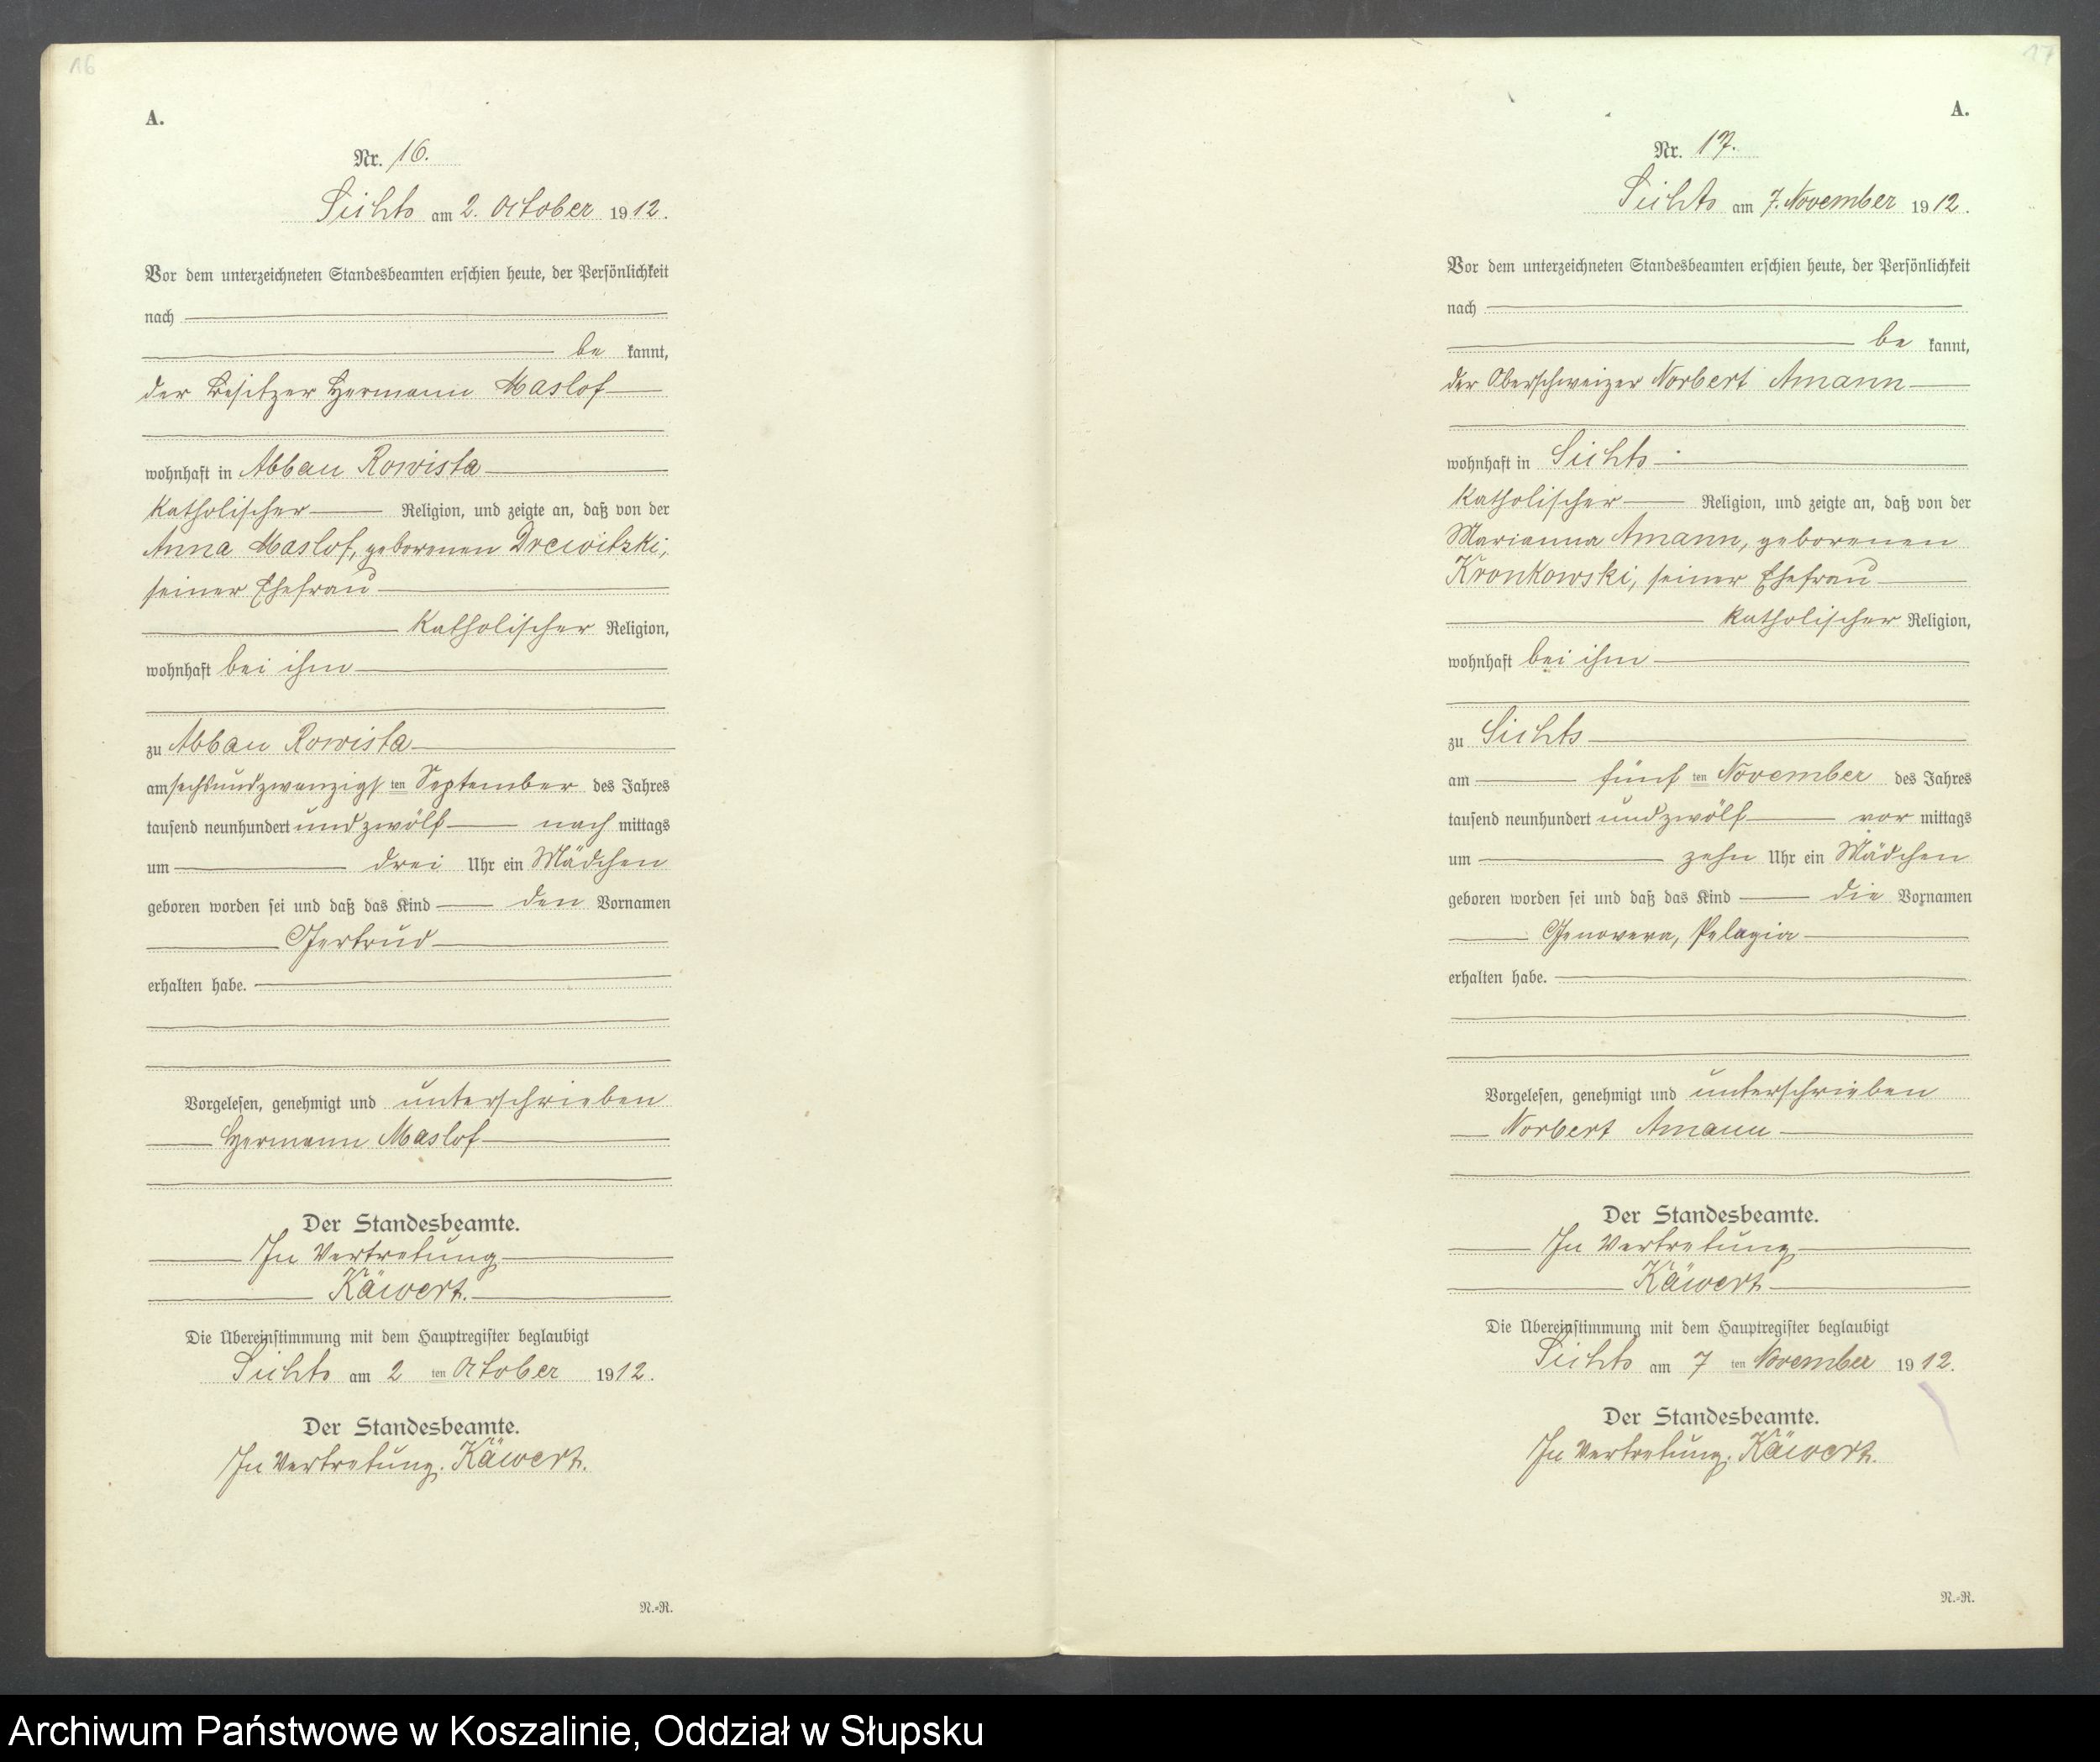 16
A.
Nr. 16.
Sichts am 2. October 1912.
Vor dem unterzeichneten Standesbeamten erschien heute, der Persönlichkeit
nach
be kannt,
der Besitzer Hermann Maslof
wohnhaft in Abbau Rowista
katholischer Religion, und zeigte an, daß von der
Anna Maslof, geborenen Drewitzki,
seiner Ehefrau
katholischer Religion,
wohnhaft bei ihm
zu Abbau Rowista
am sechsundzwanzigsten September des Jahres
tausend neunhundert und zwölf nach mittags
um drei Uhr ein Mädchen
geboren worden sei und daß das Kind den Vornamen
Gertrud
erhalten habe.
Vorgelesen, genehmigt und unterschrieben
Hermann Maslof
Der Standesbeamte.
In Vertretung
Käwert.
Die Übereinstimmung mit dem Hauptregister beglaubigt
Sichts am 2 ten October 1912.
Der Standesbeamte.
In Vertretung. Käwert.
N.=R.
17
A.
Nr. 17.
Sichts am 7. November 1912.
Vor dem unterzeichneten Standesbeamten erschien heute, der Persönlichkeit
nach
be kannt,
der Oberschweizer Norbert Amann
wohnhaft in Sichts
katholischer Religion, und zeigte an, daß von der
Marianna Amann, geborenen
Kronkowski, seiner Ehefrau
katholischer Religion,
wohnhaft bei ihm
zu Sichts
am fünf ten November des Jahres
tausend neunhundert und zwölf vor mittags
um zehn Uhr ein Mädchen
geboren worden sei und daß das Kind die Vornamen
Genovera, Pelagia
erhalten habe.
Vorgelesen, genehmigt und unterschrieben
Norbert Amann
Der Standesbeamte.
In Vertretung
Käwert
Die Übereinstimmung mit dem Hauptregister beglaubigt
Sichts am 7 ten November 1912.
Der Standesbeamte.
In Vertretung. Käwert.
N.=R.
Archiwum Państwowe w Koszalinie, Oddział w Słupsku